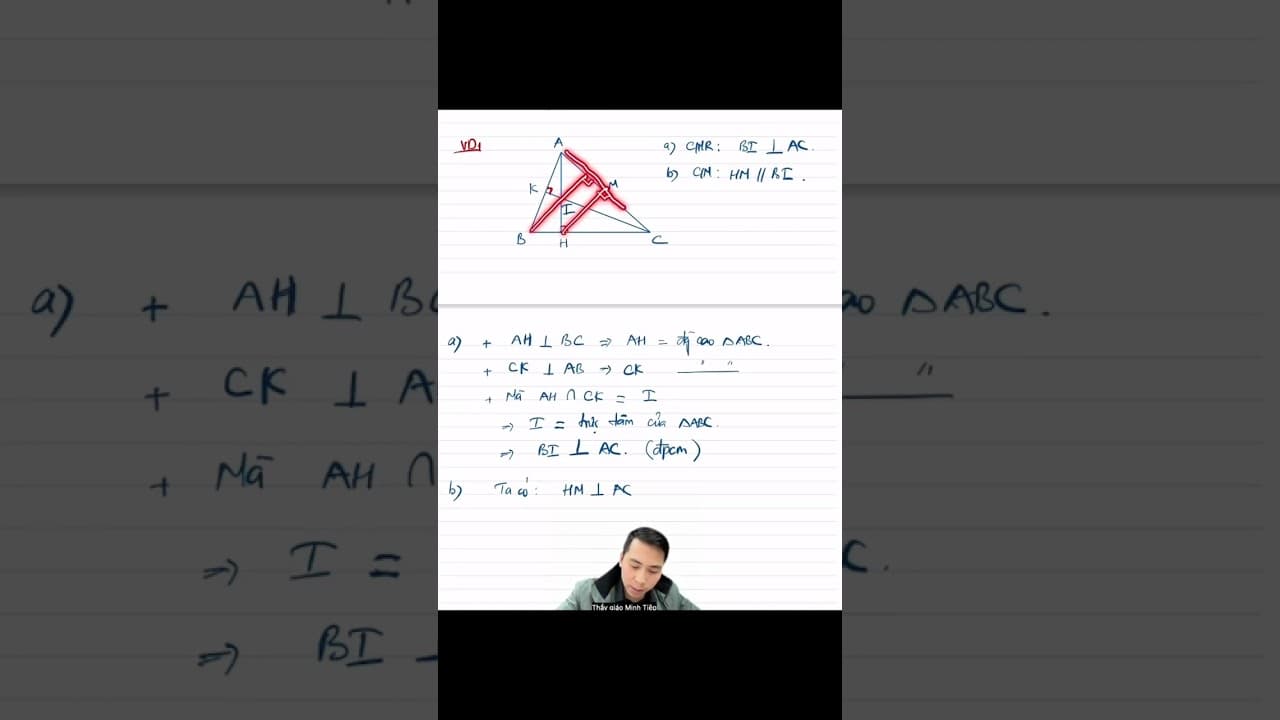 VD1
A
K
M
I
B
H
C
a) CMR: BI ⊥ AC.
b) CM: HM // BI.
a) + AH ⊥ BC ⇒ AH = đg cao △ABC.
+ CK ⊥ AB → CK " "
+ Mà AH ∩ CK = I
⇒ I = trực tâm của △ABC.
⇒ BI ⊥ AC. (đpcm)
b) Ta có: HM ⊥ AC
Thầy giáo Minh Tiệp
a) + AH ⊥ BC
ao △ABC.
+ CK ⊥ A
"
+ Mà AH ∩
⇒ I =
C.
⇒ BI